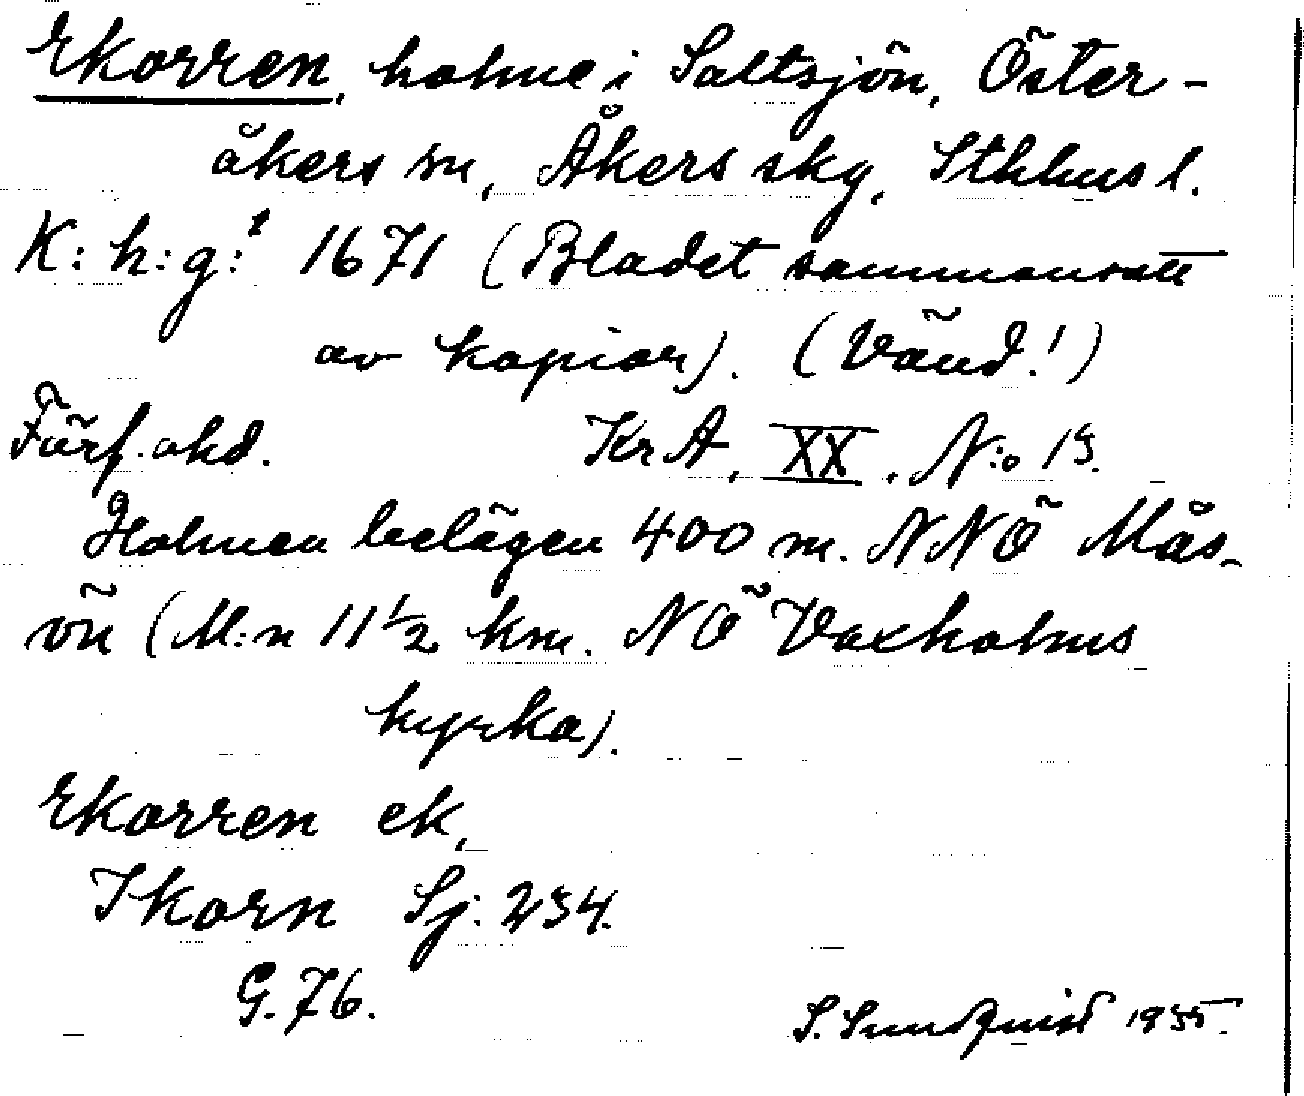 Ekorren, holme i Saltsjön, Öster-
åkers sn, Åkers skg, Sthlms l.
K:h:g:t 1671 (Bladet sammansatt
av kopior). (Vänd!)
Förf. okd. KrA, XX, N:o 15.
Holmen belägen 400 m. NNÖ Mås-
ön (M:n 11½ km. NÖ Vaxholms
kyrka).
Ekorren ek,
Ikorn Sj: 234.
G. 76.
S. Sundqvist 1935.